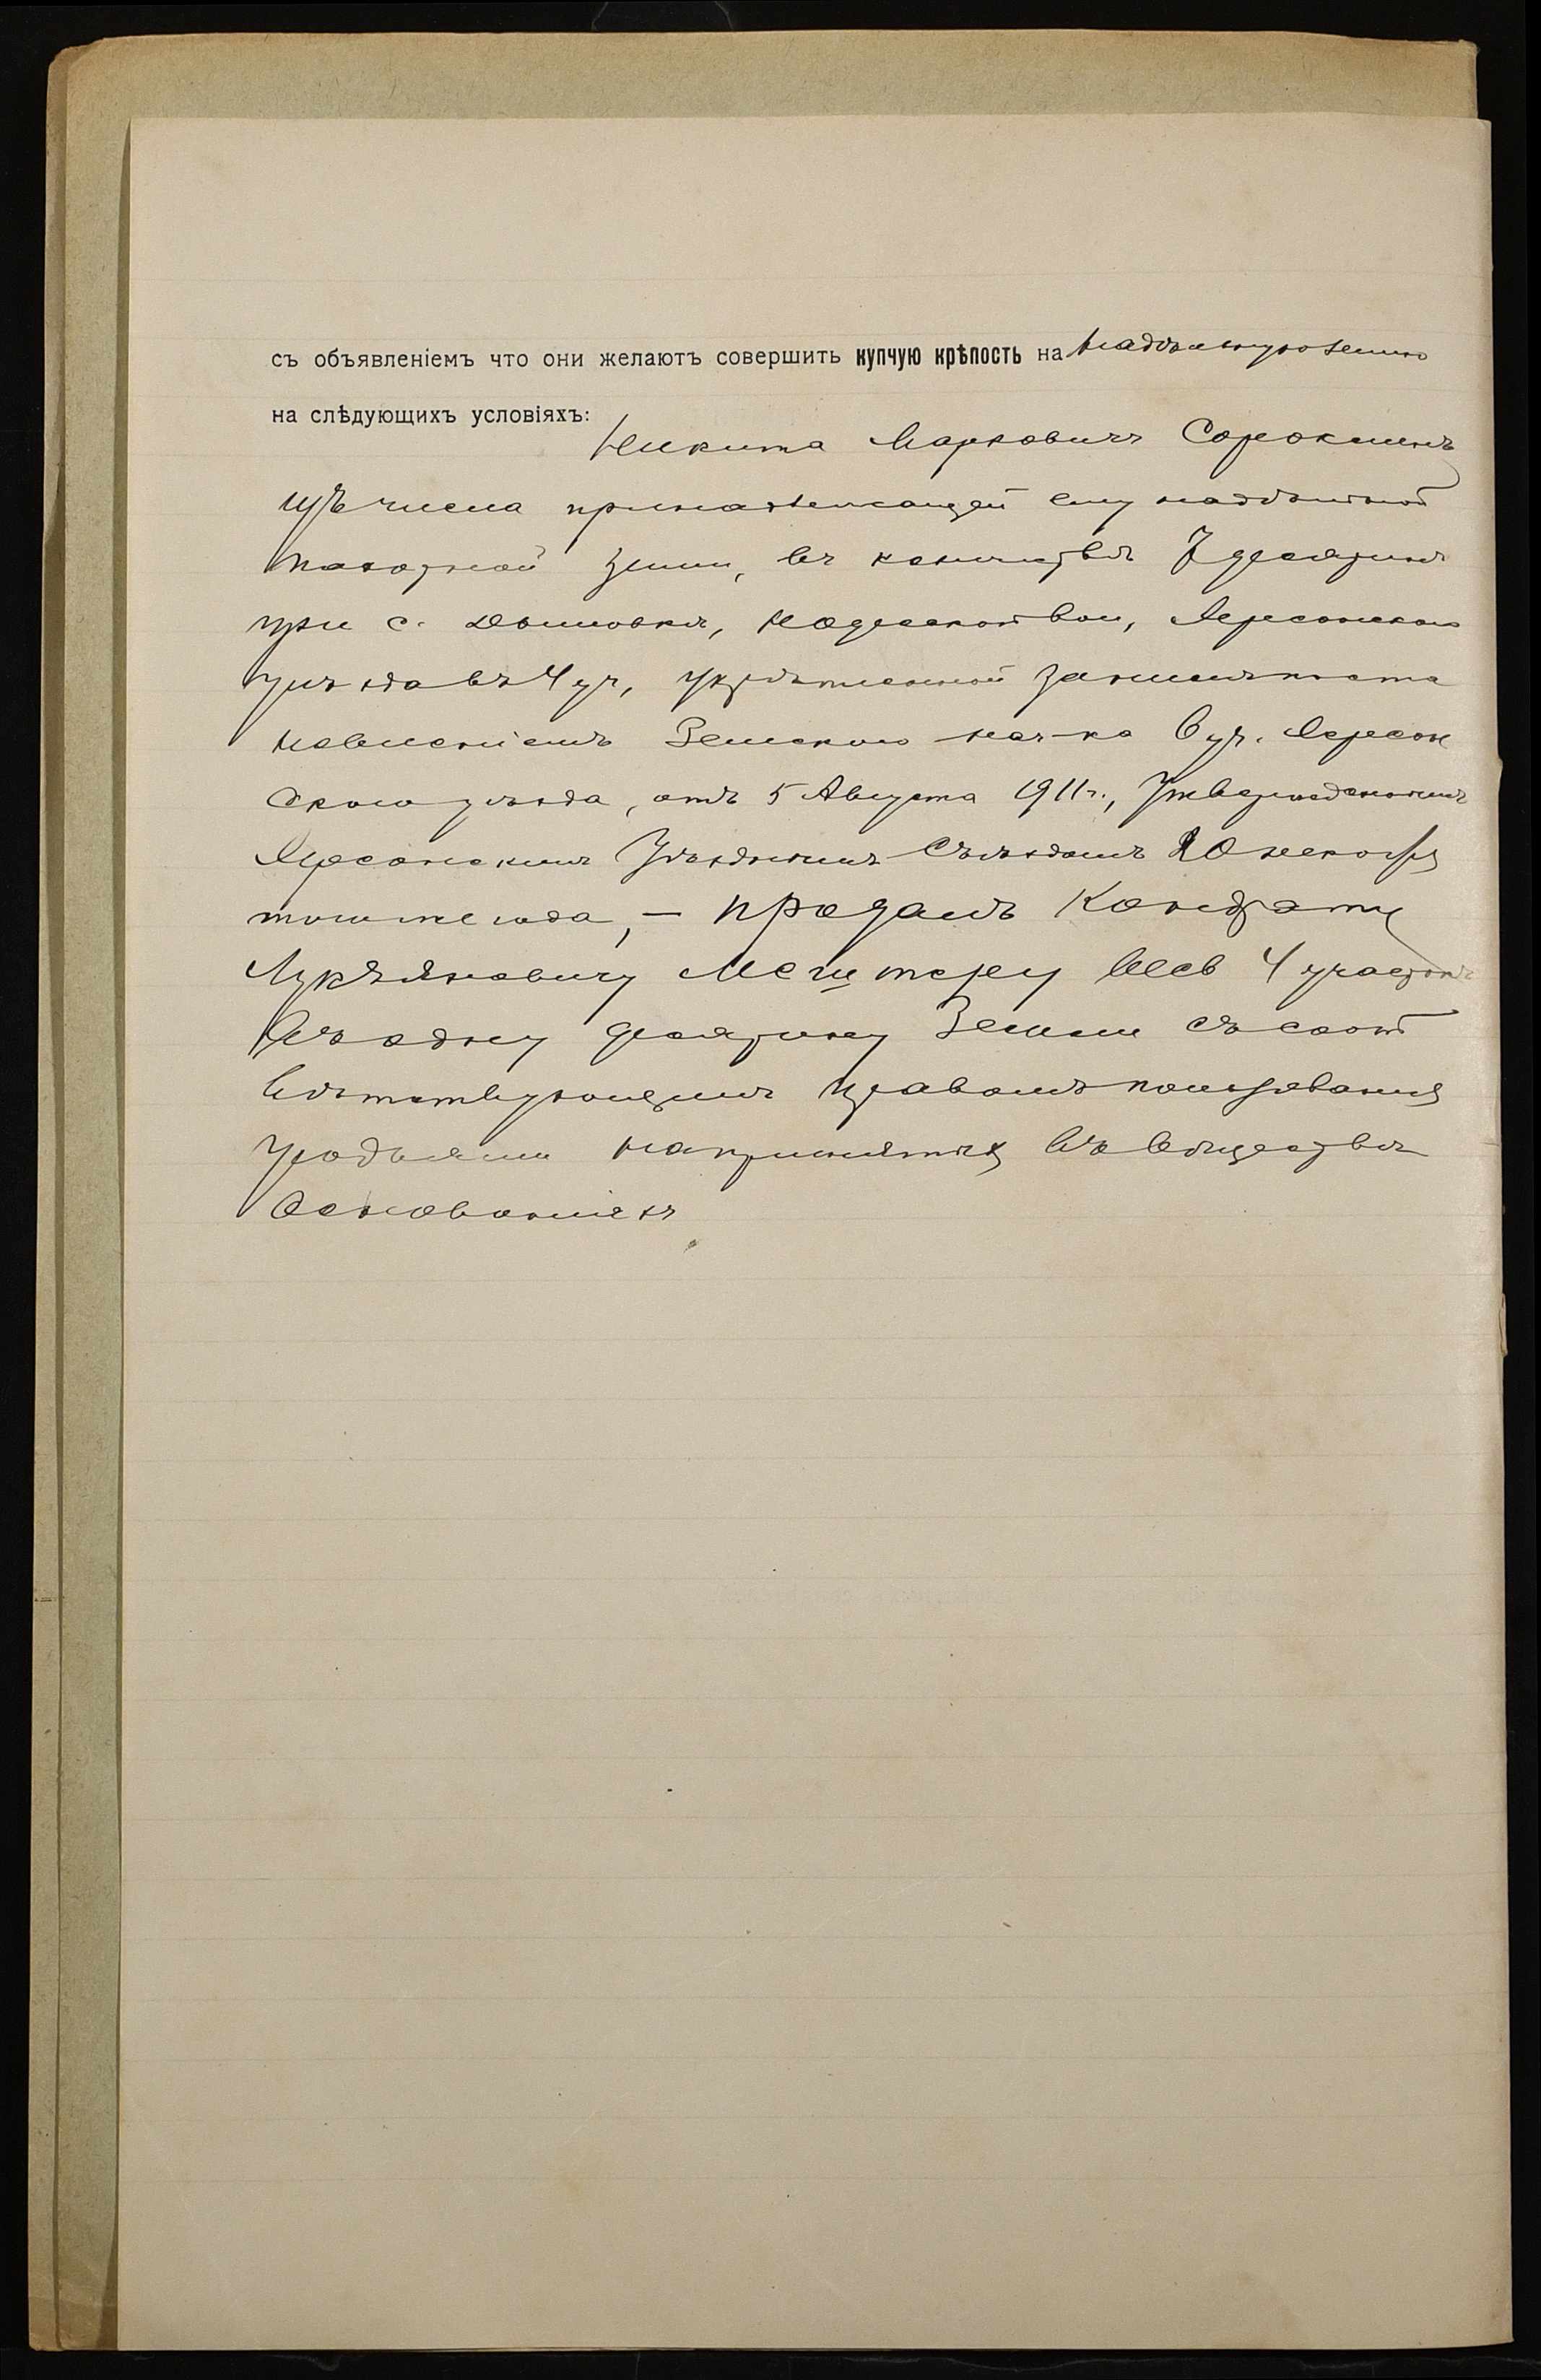 съ объявленіемъ что они желаютъ совершить купчую крѣпость на надѣльную землю
на слѣдующихъ условіяхъ:
Никита Марковичъ Сорокинъ
изъ числа принадлежащей ему надѣльной
пахотной земли, въ количествѣ 7 десятинъ
при с. вол, Херсонскаго
уѣзда въ 4 уч, укрѣпленной за нимъ поста
новленіемъ Земскаго нач-ка 6 уч. Херсон
скаго уѣзда, отъ 5 Августа 1911 г., утвержденнымъ
Херсонскимъ Уѣзднымъ Съѣздомъ 20 ноября
того же года, — продалъ Кондрату
Лукьяновичу весь 4 участокъ
въ одну десятину земли съ соот
вѣтствующимъ правомъ пользованія
угодьями на принятыхъ въ обществѣ
основаніяхъ